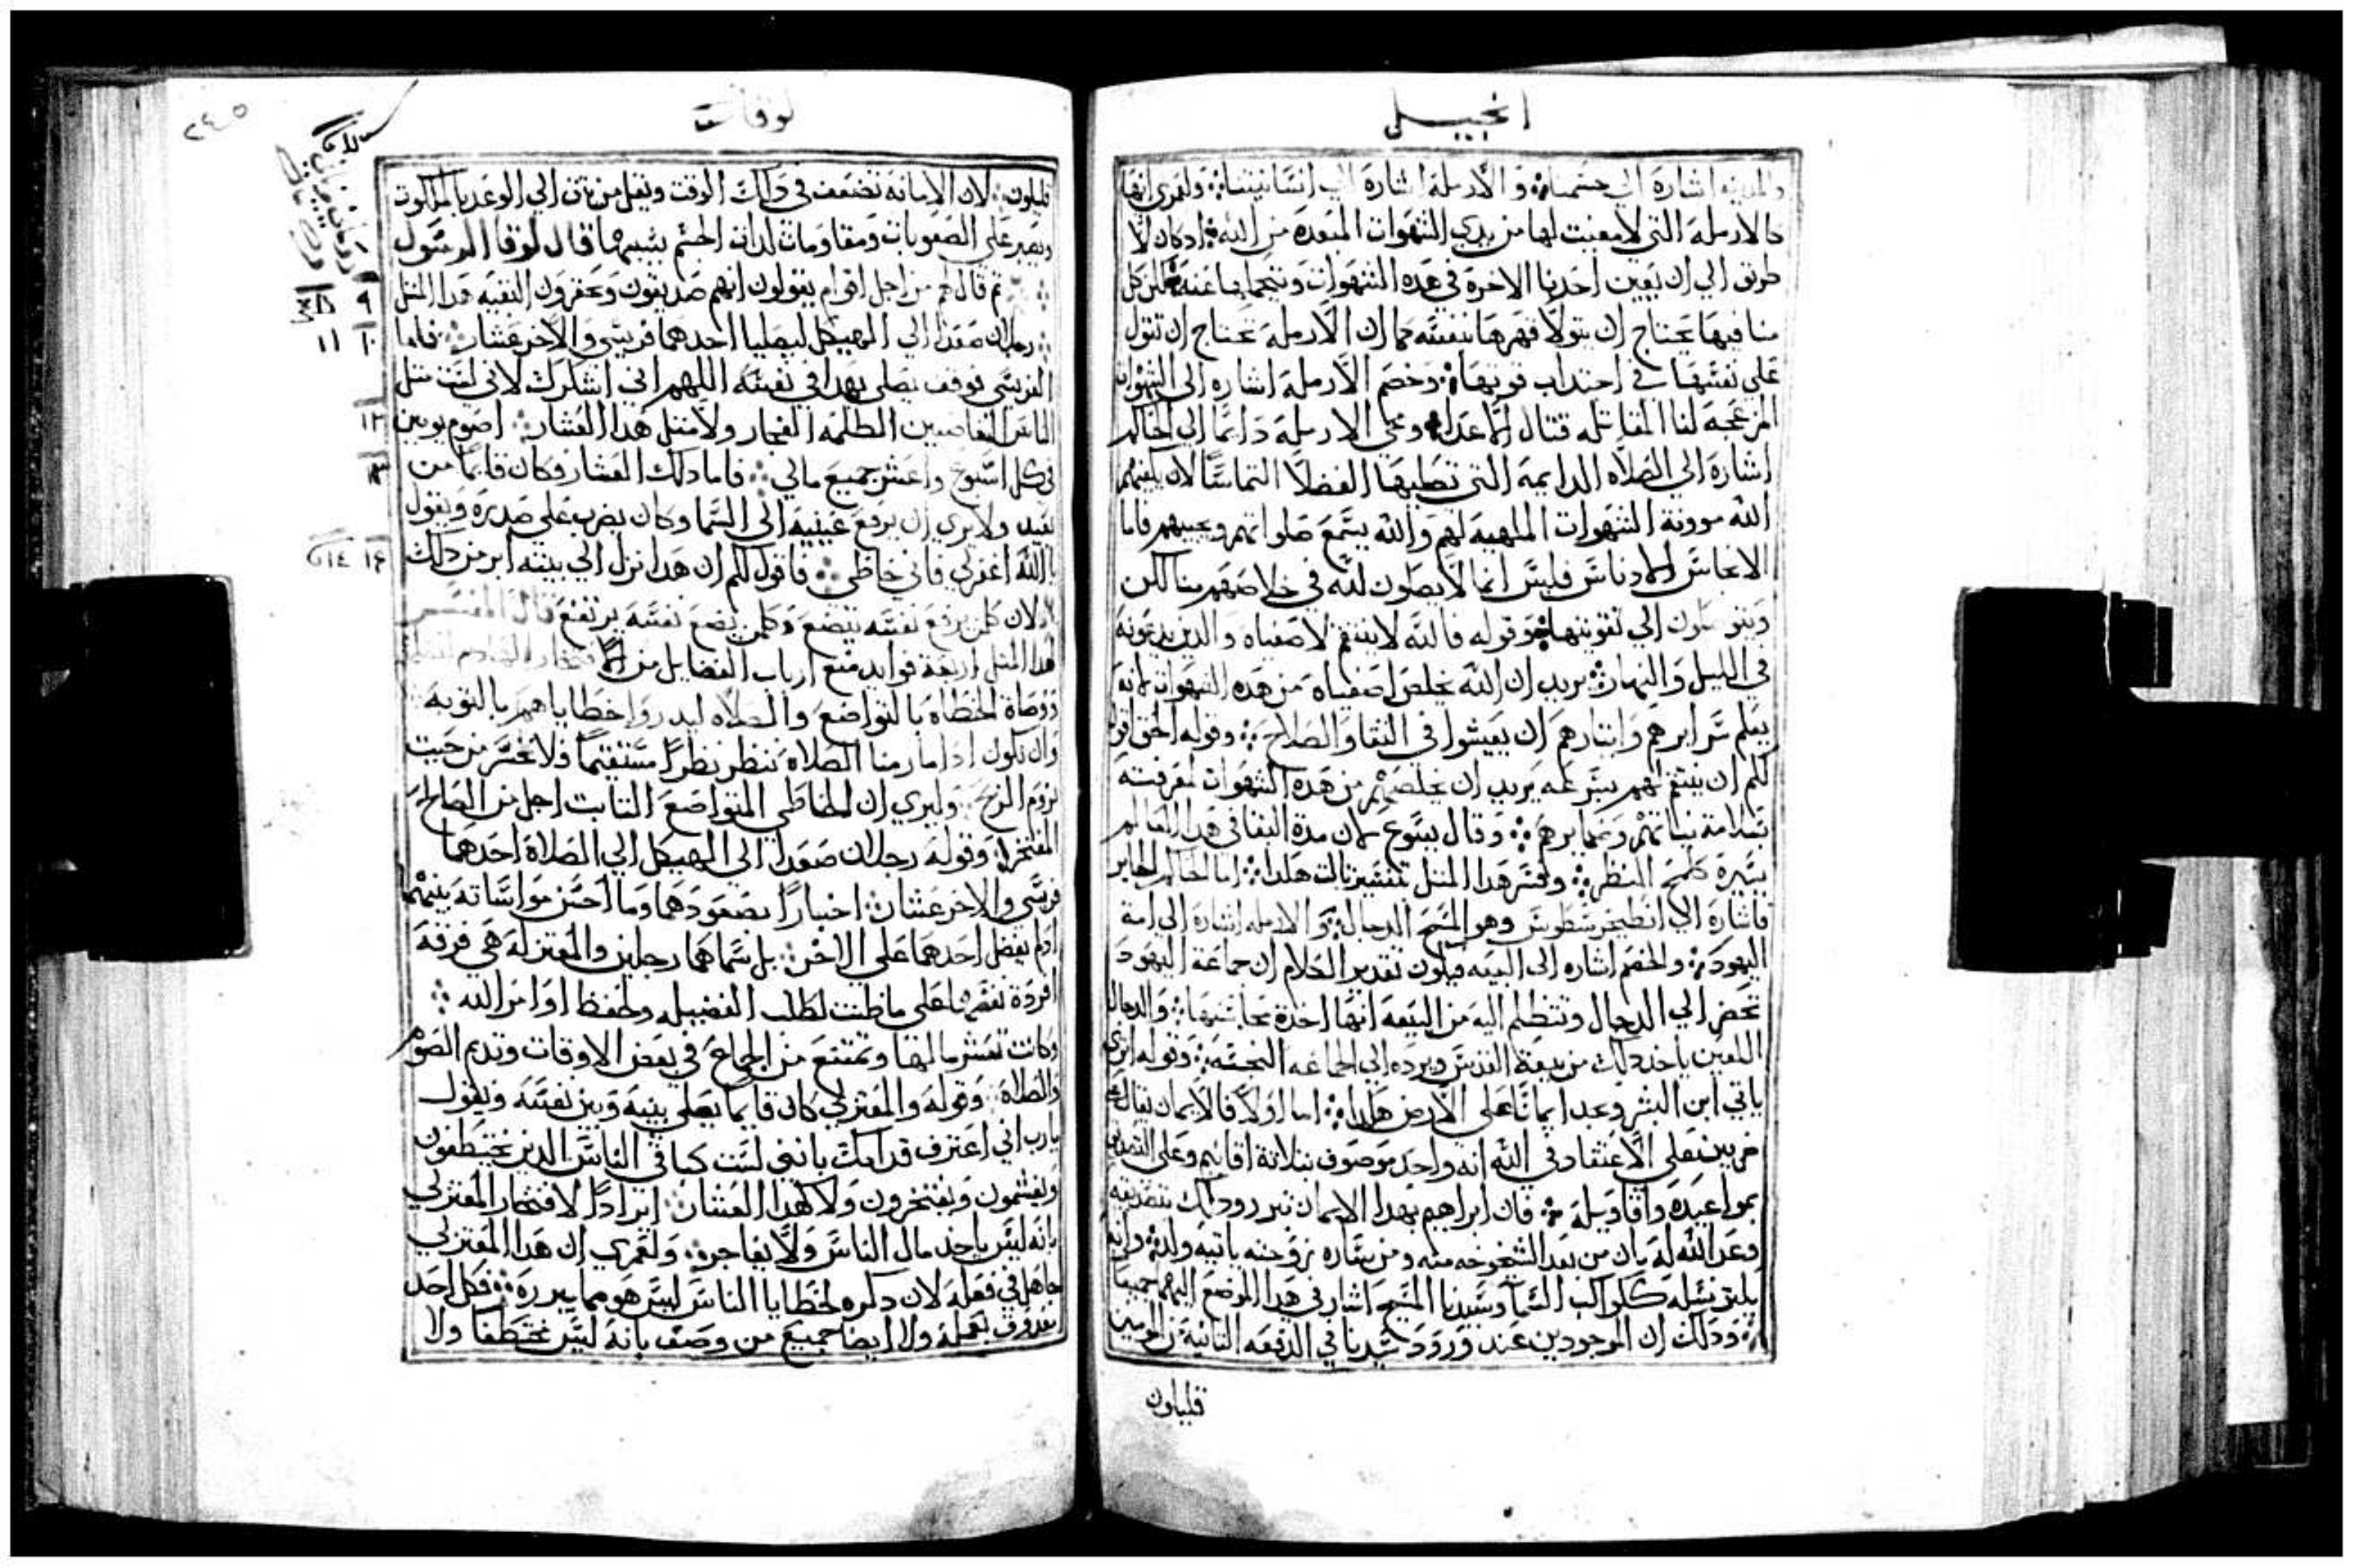 انجيل
والمدينه اشارة الي جسمنا والارملة اشارة الي انسانيتنا ولعمري انها
كالارملة التي لا معين لها من يدي الشهوات المبعدة من الله ادكان لا
طريق الي ان يعين احدنا الاخرة في هده الشهوات
منا فيها يحتاج ان يتولا قهرها بنفسه كما ان الارملة تحتاج ان تتول
علي نفسها في اجتداب قوتها وخصم الارملة اشاره الي الشهوات
المزعجة لنا المقاتله قتال الاعدا ومجي الارملة دايمًا الي الحاكم
اشارة الي الصلاه الدايمة التي الفضلا التماسًا لان يكفيهم
الله موونة الشهوات الملهبة لهم والله يسمع صلواتهم ويجيبهم فاما
الانجاس الادناس فليس انما لا يصلون لله في خلاصهم منها لكن
الي تقويتها وقوله فالله لا ينتقم لاصفياه والدين يدعونه
في الليل والنهار يريد ان الله يخلص اصفياه من هده الشهوات لانه
يعلم سرايرهم وايتارهم ان يعيشوا في النقا والصلاح وقوله الحق اقول
لكم ان ينتقم لهم بسرعه يريد ان يخلصهم من هده الشهوات لمعرفته
بسلامة نياتهم وضمايرهم وقال يسوع لان مدة البقا في هدا العالم
يسيرة كلمح البصر وفسر هدا المتل تفسير تالت هكدا اما الحاكم الجاير
فاشارة الي وهو المسيح الدجال والارمله اشارة الي امة
اليهود والخصم اشاره الي البيعه فيكون تقدير الكلام ان جماعة اليهود
تحضر الي الدجال وتتظلم اليه من البيعه انها اخدة محاسنها والدجال
اللعين ياخد دلك من بيعة القدس ويرده الي الجماعه النجسه وقوله اتري
ياتي ابن البشر وعدا ايمانًا علي الارض هكدا اما اولًا فالايمان يقال علي
ضربين علي الاعتقاد في الله انه واحد موصوف بتلاتة اقانيم وعلي التصديق
بمواعيده واقاويله فان ابراهيم بهدا الايمان تبرر ودلك بتصديقه
وعد الله له بان من بعد الشيخوخه منه ومن ساره زوجته ياتيه ولد وانه
يكتر نسله ككواكب السما وسيدنا المسيح اشار في هدا الموضع اليهما جميعًا
ودلك ان الموجودين عند ورود سيدنا في الدفعه التانية من المومنين
قليلون
لوقا
٢٤٥
قليلون لان الامانة تضعف في دلك الوقت ويقل من يتق الي الوعد بالملكوت
ويصبر علي الصعوبات ومقاومات لدات الجسم بسببهما قال لوقا الرسول
تم قال لهم من اجل اقوام يقولون انهم صديقون ويحقرون البقيه هدا المتل
٩
رجلان صعدا الي الهيكل ليصليا احدهما فريسي والاخر عشار فاما
١٠ ١١
الفريسي فوقف يصلي بهدا في نفسه اللهم اني اشكرك لاني لست متل
الناس الغاصبين الظلمه الفجار ولا متل هدا العشار اصوم يومين
١٢
في كل اسبوع واعشر جميع مالي فاما دلك العشار فكان قايمًا من
١٣
بعيد ولا يري ان يرفع عينيه الي السما وكان يضرب علي صدره ويقول
يا الله اغفر لي فاني خاطي فاقول لكم ان هدا نزل الي بيته ابر من داك
١٤
لان كل من يرفع نفسه يتضع وكلمن يضع نفسه يرتفع قال المفسر
هدا المتل اربعة فوايد منع ارباب الفضايل من الافتخار
ووصاة الخطاه بالتواضع والصلاه ليدروا خطاياهم بالتوبه
وان نكون ادا ما رمنا الصلاه ننظر نظرًا مستقيمًا فلا نخسر من حيث
نروم الربح وليري ان الخاطي المتواضع التابت اجل من الصالح
المفتخر وقوله رجلان صعدا الي الهيكل الي الصلاة احدهما
فريسي والاخر عشار اخبارًا بصعودهما وما احسن مواساته بينهما
ادلم يفضل احدهما علي الاخر بل سماهما رجلين والمعتزله هي فرقة
افردة نفسها علي ما ظنت لطلب الفضيله وحفظ اوامر الله
وكانت تعشر مالها وتمتنع من الجماع في بعض الاوقات وتديم الصوم
والصلاة وقوله والمعتزلي كان قايما يصلي بينه وبين نفسه ويقول
يارب اني اعترف قدامك بانني لست كباقي الناس الدين يختطفون
ويغشمون ويفتخرون ولا كهدا العشار ايرادًا لافتخار المعتزلي
بانه ليس ياخد مال الناس ولا بفاجر ولعمري ان هدا المعتزلي
جاهل في فعله لان دكره لخطايا الناس ليس هو مما يبرره فكل احد
بعمله ولا ايضا جميع من وصف بانه ليس مختطفًا ولا